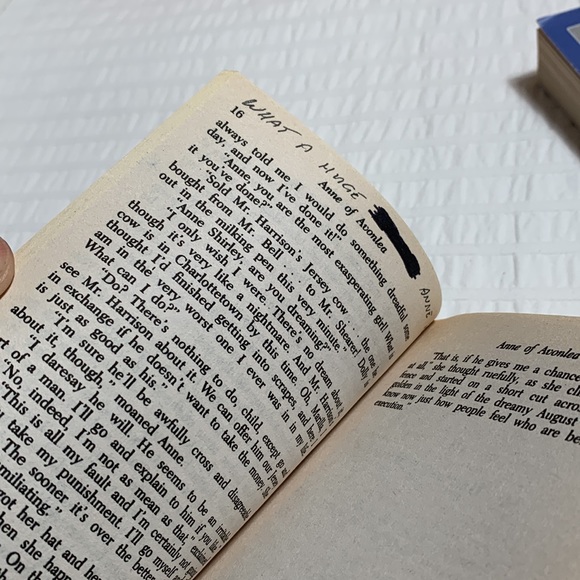 WHAT A HUGE
ANNE
16
Anne of Avonlea
always told me I would do something dreadful some
day, and now I've done it!"
"Anne, you are the most exasperating girl! What
it you've done?"
"Sold Mr. Harrison's Jersey cow . . . the one he
bought from Mr. Bell . . . to Mr. Shearer! Dolly is
out in the milking pen this very minute."
"Anne Shirley, are you dreaming?"
"I only wish I were. There's no dream about it,
though it's very like a nightmare. And Mr. Harrison's
cow is in Charlottetown by this time. Oh, Marilla, I
thought I'd finished getting into scrapes, and here I
am in the very worst one I ever was in in my life.
What can I do?"
"Do? There's nothing to do, child, except go and
see Mr. Harrison about it. We can offer him our Jersey
in exchange if he doesn't want to take the money. She
is just as good as his."
"I'm sure he'll be awfully cross and disagreeable
about it, though," moaned Anne.
"I daresay he will. He seems to be an irritable
rt of a man. I'll go and explain to him if you like."
"No, indeed, I'm not as mean as that," exclaimed
"This is all my fault and I'm certainly not
take my punishment. I'll go myself
The sooner it's over the better
miliating."
got her hat and her
when she happ
On
Anne of Avonlea
That is, if he gives me a chance
at all," she thought ruefully, as she
fence and started on a short cut across
golden in the light of the dreamy August
know now just how people feel who are
execution."